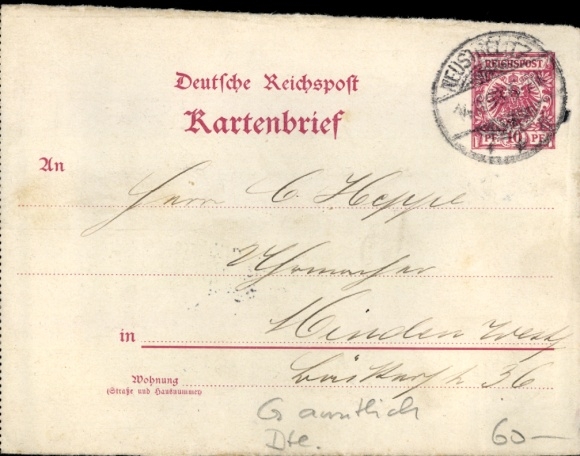 NEUSTRELITZ
REICHSPOST
PF 10 PF
Deutsche Reichspost
Kartenbrief
An
Herrn C. Heppe
Uhrmacher
in Minden Westf
Wohnung
(Straße und Hausnummer)
36
Dte.
60—